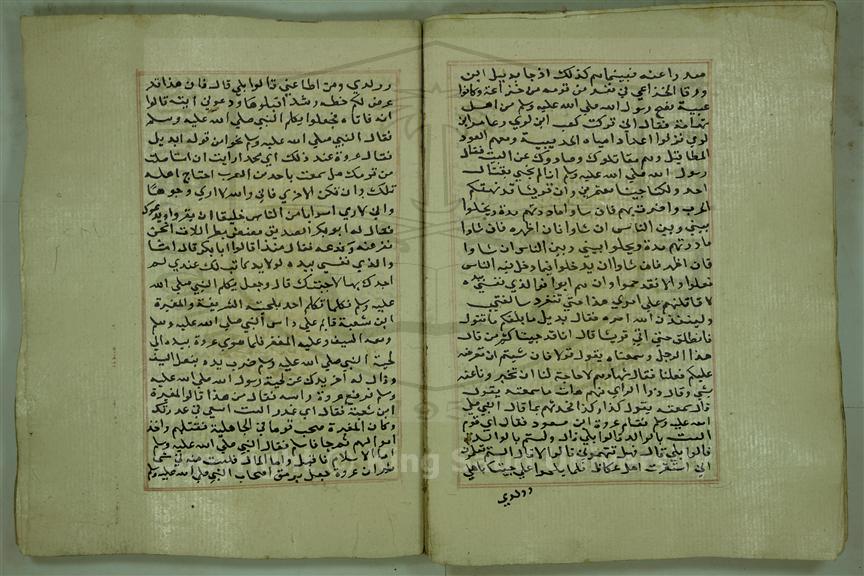 معه راعنه فبينما هم كذلك اذ جا بديل ابن
ورقا الخزاعي في نفر من قومه من خزاعة وكانوا
عيبة نصح رسول الله صلى الله عليه وسلم من اهل
تهامة فقال اني تركت كعب ابن لوي وعامر ابن
لوي نزلوا اعداد امياه الحديبية ومعهم العوذ
المطافيل وهم مقاتلوك وصادوك عن البيت فقال
رسول الله صلى الله عليه وسلم انا لم نجي لقتال
احد ولكنا جينا معتمرين وان قريشا قد نهكتهم
الحرب واضرت بهم فان شاوا ماددتهم مدة ويخلوا
بيني وبين الناس ان شاوا فان اظهر فان شاوا
ماددتهم مدة ويخلوا بيني وبين الناس ان شاوا
فان اظهر فان شاوا ان يدخلوا فيما دخل فيه الناس
فعلوا والا فقد جموا وان هم ابوا فوالذي نفسي بيده
لاقاتلنهم علي امري هذا حتي تنفرد سالفتي
ولينفذن الله امره فقال بديل سابلغهم ما تقول
فانطلق حتي اتي قريشا قال انا قد جيناكم من قال
هذا الرجل وسمعناه يقول قولا فان شيتم ان نعرضه
عليكم فعلنا فقال سفهاوهم لا حاجة لنا ان تخبرونا عنه
بشي وقال ذوا الراي منهم هات ما سمعته يقول
قال سمعته يقول كذا وكذا فحدثهم بما قال النبي صلى
الله عليه وسلم فقام عروة ابن مسعود فقال اي قوم
الست بالوالد قالوا بلي قال ولستم بالولد
قالوا بلي قال فهل تتهموني قالوا لا قال الستم تعلمون
اني استنفرت اهل عكاظ فلما بلحوا علي جيتكم باهلي
وولدي
وولدي ومن اطاعني قالوا بلي قال فان هذا قد
عرض لكم خطة رشد اقبلوها ودعوني اتيه قالوا
ائته فاتاه فجعلوا يكلم النبي صلى الله عليه وسلم
فقال النبي صلى الله عليه وسلم نحوا من قوله لبديل
فقال عروة عند ذلك اي محمد ارايت ان استاصلت
من قومك هل سمعت باحد من العرب اجتاح اهله
قبلك وان تكن الاخري فاني والله لاري وجوها
واني لاري اشوابا من الناس خليقا ان يفروا ويدعوك
فقال له ابو بكر الصديق امصص بظر اللات انحن
نفر عنه وندعه فقال من ذا قالوا ابا بكر قال اما
والذي نفسي بيده لولا يد كانت لك عندي لم
اجزك بها لاجبتك قال وجعل يكلم النبي صلى الله
عليه وسلم فكلما تكلم اخذ بلحيته الشريفة والمغيرة
ابن شعبة قايم علي راس النبي صلى الله عليه وسلم
ومعه السيف وعليه المغفر فلما هوي عروة بيده الي
لحية النبي صلى الله عليه وسلم ضرب يده بنعل السيف
وقال له اخر يدك عن لحية رسول الله صلى الله عليه
وسلم فرفع عروة راسه فقال من هذا قالوا المغيرة
ابن شعبة فقال اي غدر الست اسعي في غدرتك
وكان المغيرة صحب قوما في الجاهلية فقتلهم واخذ
اموالهم ثم جا فاسلم فقال النبي صلى الله عليه وسلم
اما الاسلام فاقبل واما المال فلست منه في شي
ثم ان عروة جعل يرمق اصحاب النبي صلى الله عليه وسلم